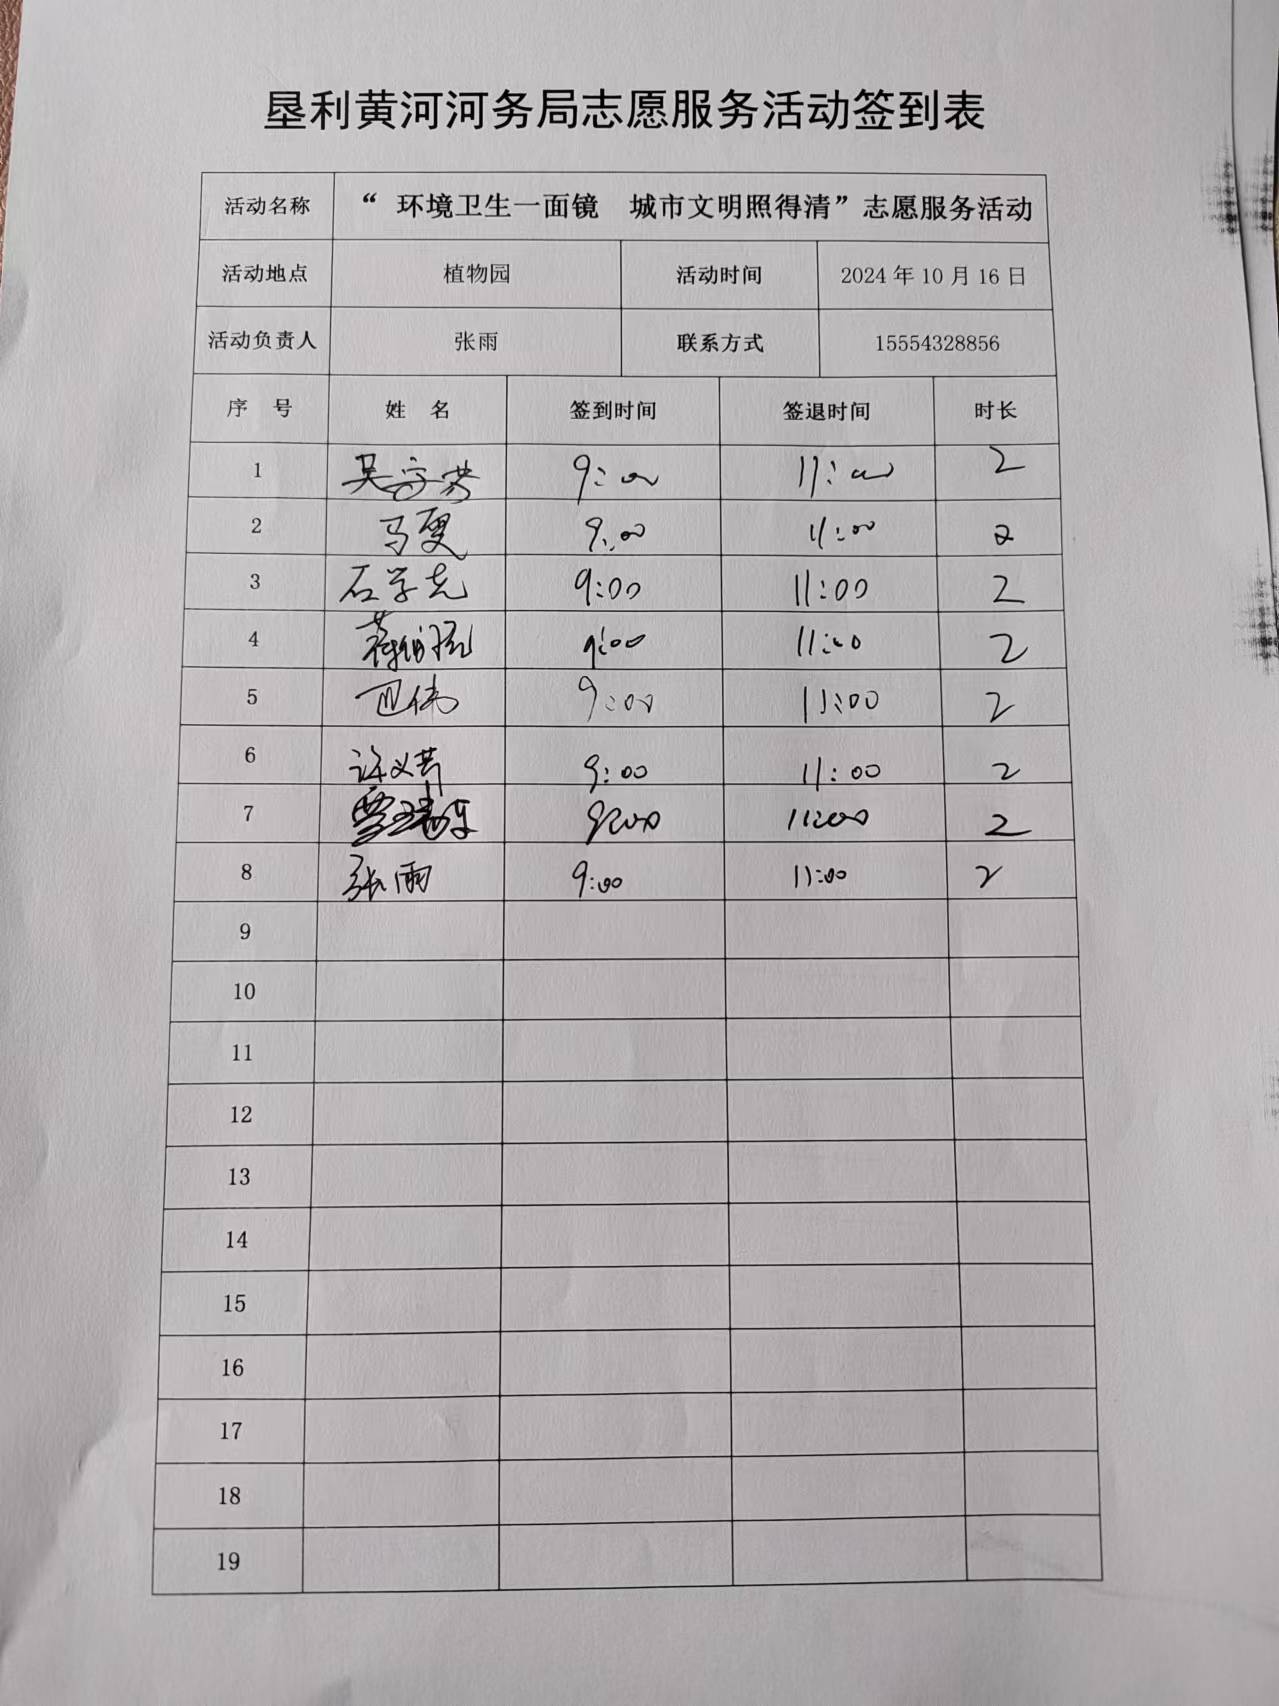 垦利黄河河务局志愿服务活动签到表
活动名称 “ 环境卫生一面镜 城市文明照得清”志愿服务活动
活动地点 植物园 活动时间 2024 年 10 月 16 日
活动负责人 张雨 联系方式 15554328856
序 号 姓 名 签到时间 签退时间 时长
1 吴 9:00 11:00 2
2 马雯 9:00 11:00 2
3 石学志 9:00 11:00 2
4 9:00 11:00 2
5 伟 9:00 11:00 2
6 许义芸 9:00 11:00 2
7 9:00 11:00 2
8 张雨 9:00 11:00 2
9
10
11
12
13
14
15
16
17
18
19